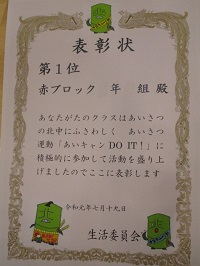 表彰状
第1位
赤ブロック 年 組 殿
あなたがたのクラスはあいさつ
の北中にふさわしく あいさつ
運動「あいキャンDO IT!」に
積極的に参加して活動を盛り上
げましたのでここに表彰します
令和元年七月十九日
生活委員会